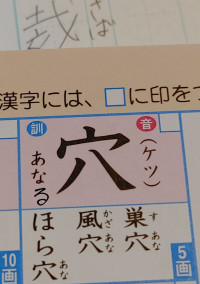 さば
哉
漢字には、□に印をつ
音
(ケツ)
穴
訓
あな
る
巣穴
すあな
風穴
かざあな
ほら穴
あな
5画
10画